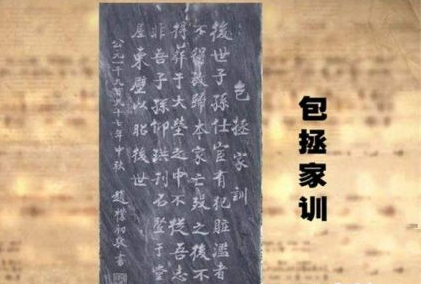 包拯家训
包拯家訓
後世子孫仕宦有犯贓濫者
不得放歸本家亡歿之後不
得葬于大塋之中不從吾志
非吾子孫仰珙刊石竪于堂
屋東壁以昭後世
公元一千九百九十七年中秋 趙樸初敬書